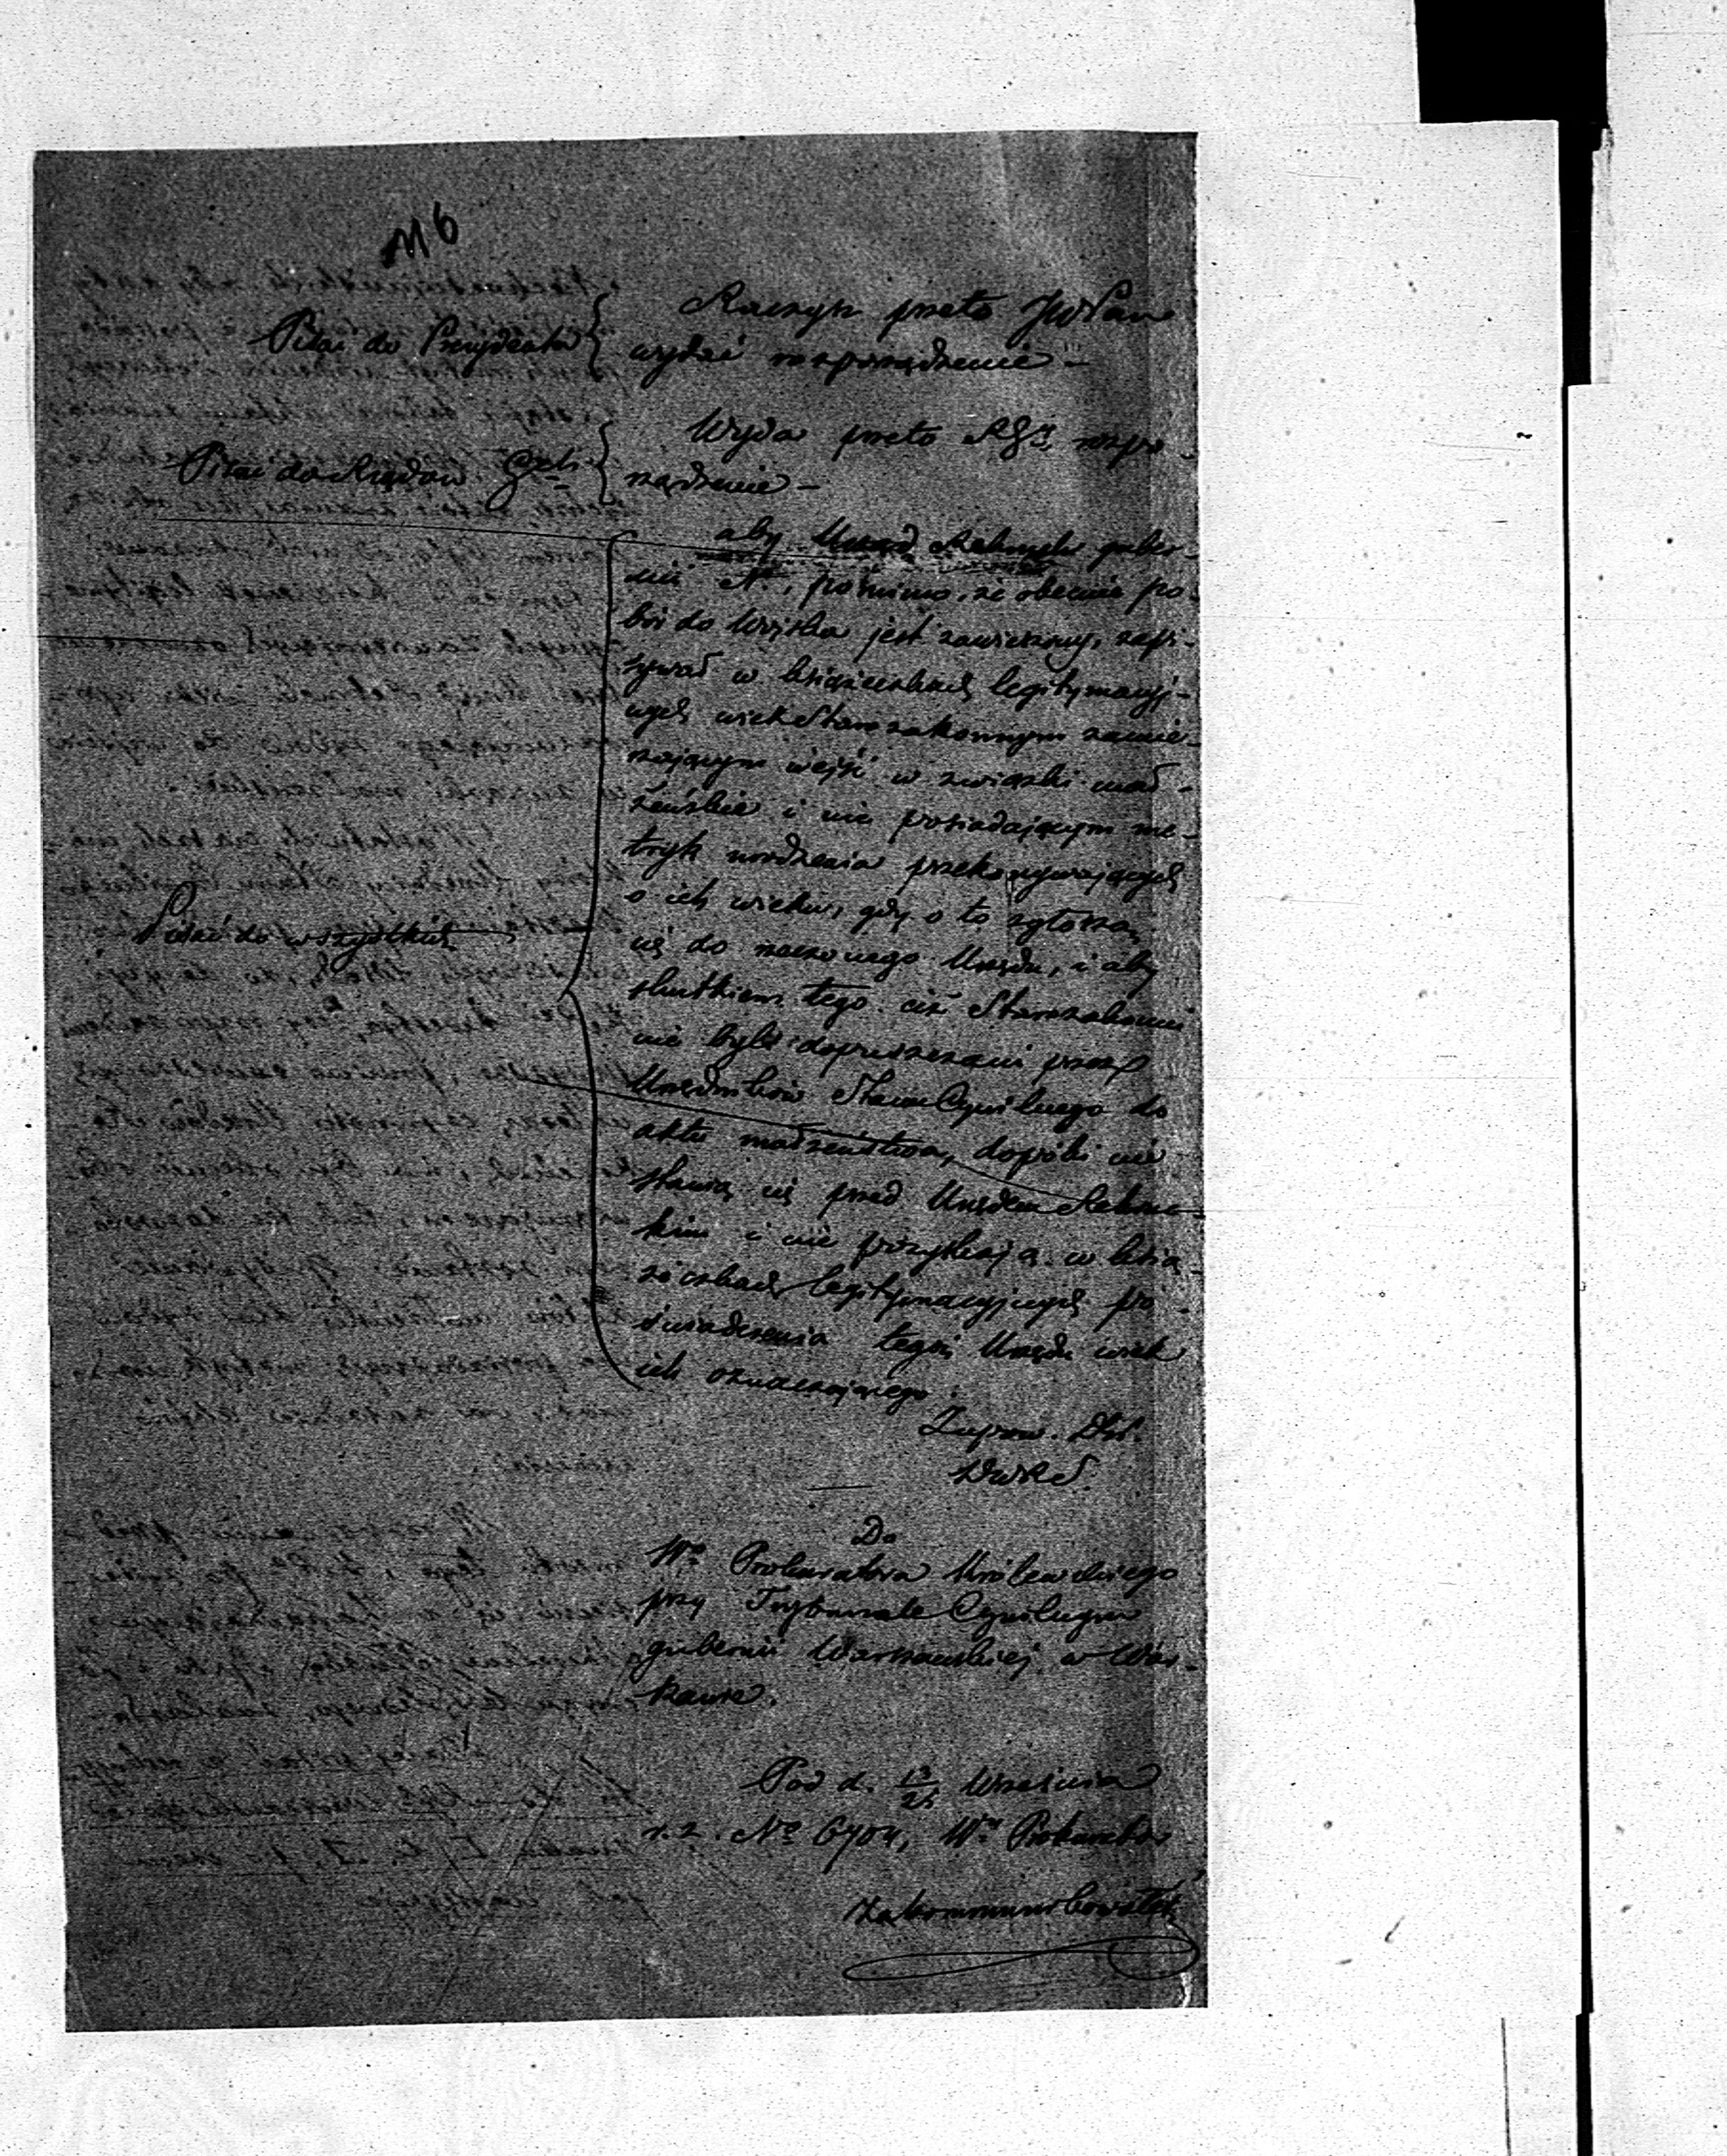 116
Pisać do Prezydenta
Raczysz przeto JWPan
wydać rozporządzenie –
Pisać do Rządów Gub.
Wyda przeto RG. rozpo-
rządzenie –
Pisać do wszystkich
aby Urząd Lekarski guber-
nii N., pomimo, że obecnie po-
bór do Wojska jest zawieszony, zapi-
sywał w książeczkach legitymacyj-
nych wiek Starozakonnym zamie-
rzającym wejść w związki mał-
żeńskie i nie posiadającym me-
tryk urodzenia przekonywających
o ich wieku, gdy o to zgłoszą
się do rzeczonego Urzędu, i aby
skutkiem tego ciż Starozakonni
nie byli dopuszczani przez
Urzędników Stanu Cywilnego do
aktu małżeństwa, dopóki nie
stawią się przed Urzędem Lekars-
kim i nie pozyskają w książ-
żeczkach legitymacyjnych po-
świadczenia tegoż Urzędu wiek
ich oznaczającego.
Do
Wo Prokuratora Królewskiego
przy Trybunale Cywilnym
gubernii Warszawskiej w War-
szawie.
Pod d. 13/25 Września
r. z. No 6704, Wny Prokurator
zakommunikował